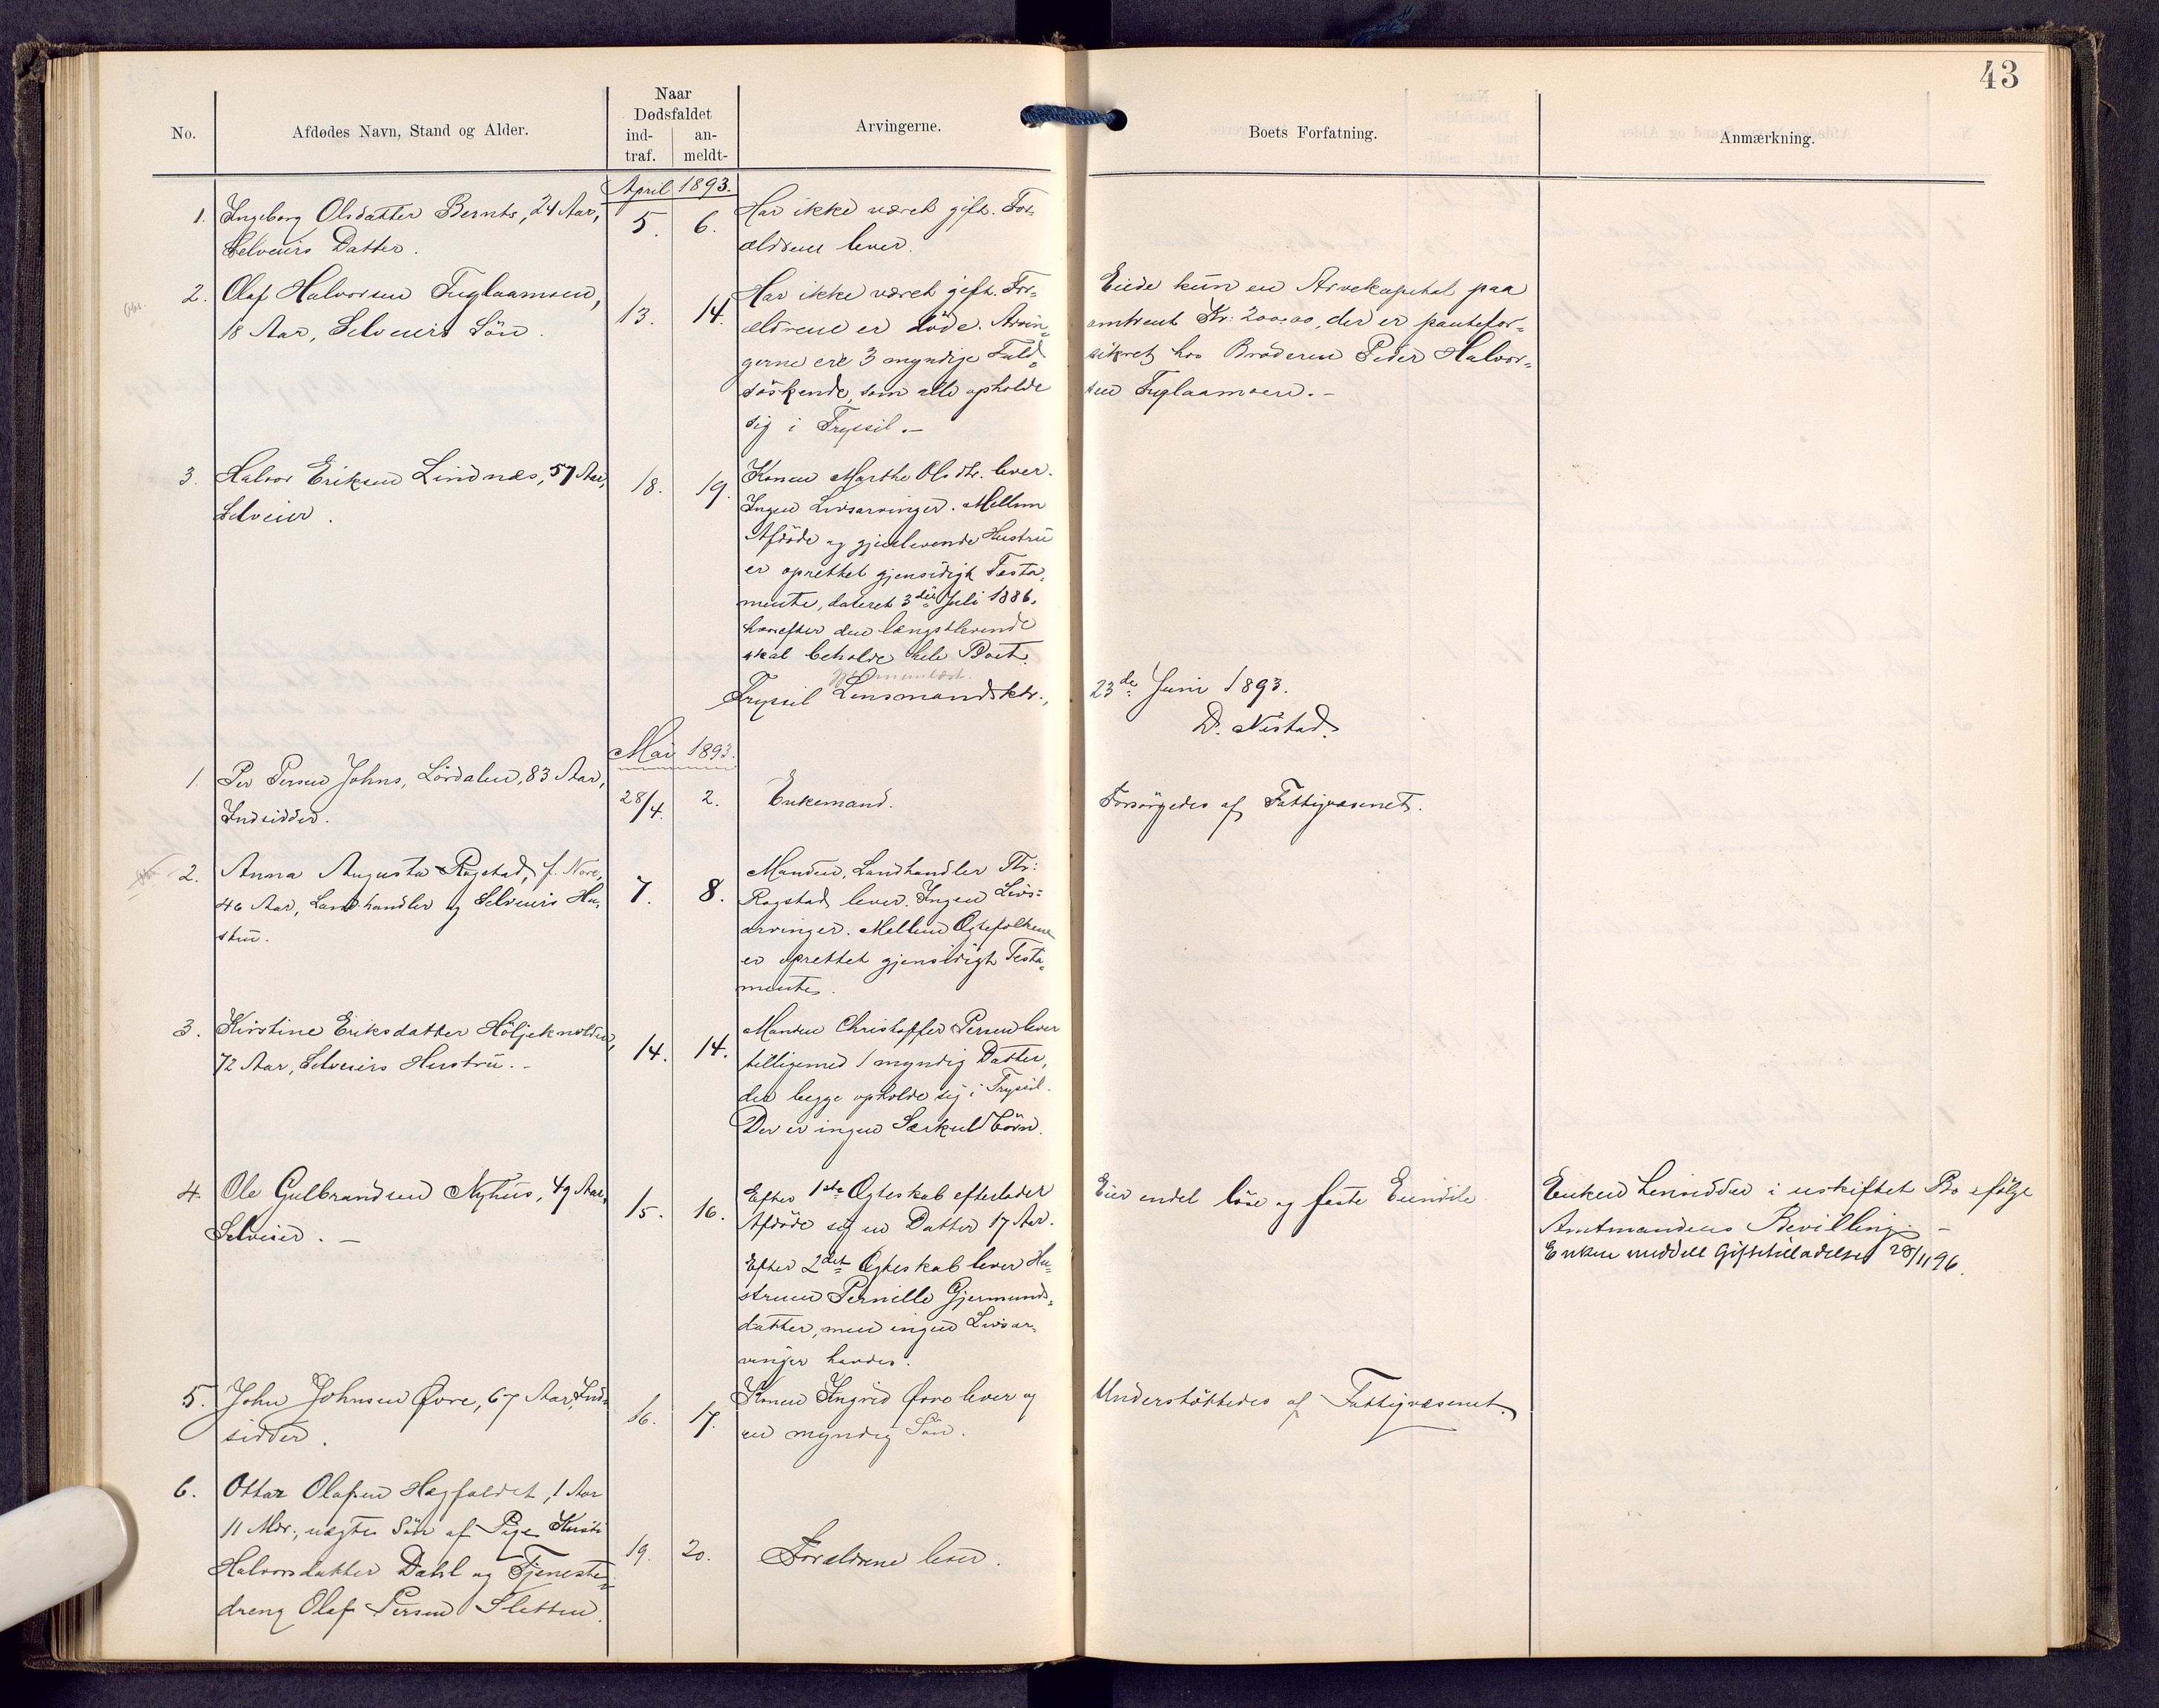 43
No.
Afdødes Navn, Stand og Alder.
Naar
Dødsfaldet
ind-
traf.
an-
meldt-
Arvingerne.
Boets Forfatning.
Anmærkning.
April 1893.
1. Ingeborg Olsdatter Bernts, 24 Aar,
Selveiers Datter.
5. 6.
Har ikke været gift. For-
ældrene lever.
2. Olaf Halvorsen Fuglaamoen,
18 Aar, Selveiers Sön.
13. 14.
Har ikke været gift. For-
ældrene er döde. Arvin-
gerne ere 3 myndige Fuld-
söskende, som alle opholde
sig i Trysil.-
Eiede kun en Arvekapital paa
omtrent Kr. 200,00, der er pantefor-
sikret hos Broderen Peder Halvor-
sen Fuglaamoen.-
3. Halvor Eriksen Lindnes, 57 Aar,
Selveier.
18. 19.
Konen Marthe Olsdtr. lever.
Ingen Livsarvinger. Mellem
Afdöde og gjenlevende Hustru
er oprettet gjensidigt Testa-
mente, dateret 3die Juli 1886,
hvorefter den længstlevende
skal beholde hele Boet.
Trysil Lensmandsktr.,
23de Juni 1893.
D. Nistad
Mai 1893.
1. Per Persen Johns, Lördalen, 83 Aar,
Indsidder.
28/4. 2.
Enkemand.
Forsörgedes af Fattigvæsenet.
2. Anna Augusta Rogstad, f. Nore,
46 Aar, Landhandler og Selveiers Hu-
stru.
7. 8.
Manden, Landhandler Th:
Rogstad lever. Ingen Livs-
arvinger. Mellem Ægtefolkene
er oprettet gjensidigt Testa-
mente.
3. Kirstine Eriksdatter Höljeknolden,
72 Aar, Selveiers Hustru.-
14. 14.
Manden Christoffer Persen lever
tilligemed 1 myndig Datter,
der begge opholde sig i Trysil.
Der er ingen Særkuldbörn.
4. Ole Gulbrandsen Nyhus, 49 Aar,
Selveier.-
15. 16.
Efter 1ste Ægteskab efterlader
Afdöde sig en Datter 17 Aar.
Efter 2det Ægteskab lever Hu-
struen Pernille Gjermunds-
datter, men ingen Livsar-
vinger haves.
Eier endel löse og faste Eiendele
Enken hensidder i uskiftet Bo ifölge
Amtmandens Bevilling.-
Enken meddelt Giftetilladelse 28/11 96.
5. John Johnsen Øvre, 67 Aar, Ind-
sidder.
16. 17.
Konen Ingrid Øvre lever og
en myndig Sön.
Understöttedes af Fattigvæsenet.
6. Ottar Olafsen Hagfaldet, 1 Aar
11 Mdr., uægte Sön af Pige Kristi
Halvorsdatter Dahl og Tjeneste-
dreng Olaf Persen Sletten.
19. 20.
Forældrene lever.